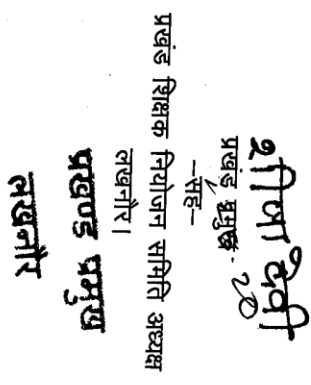 प्रखंड प्रमुख
–सह–
प्रखंड शिक्षक नियोजन समिति अध्यक्ष
लखनौर।
प्रखण्ड प्रमुख
लखनौर